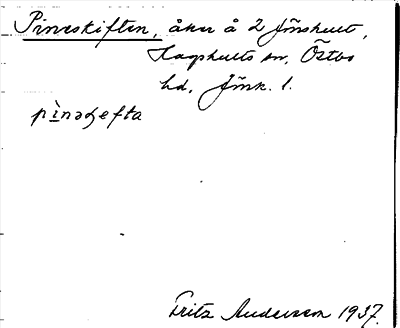 Pineskiften, åker å 2 Jönshult,
Hagshults sn, Östbo
hd, Jönk. l.
pìnəʒefta
Fritz Andersson 1937.